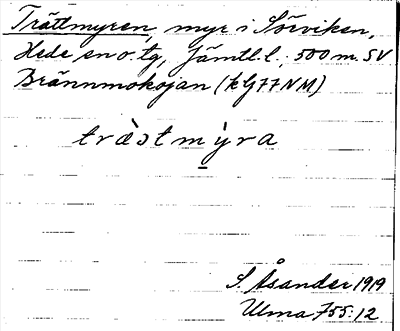 Trättmyren, myr i Sörviken,
Hede sn o. tg, Jämtl. l., 500 m. SV
Brännmokojan (k G77NM)
træ̀ɔtmỳra
S. Åsander 1919
Ulma 755:12